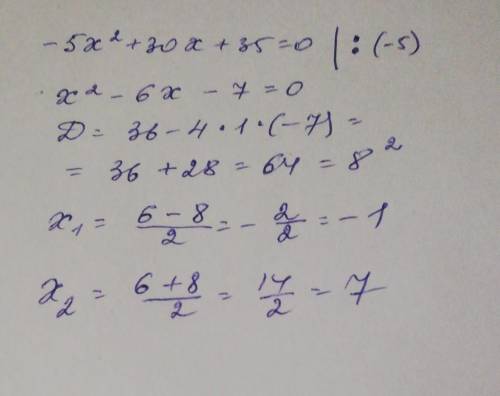 -5x² + 30x + 35 = 0 | : (-5)
x² - 6x - 7 = 0
D = 36 - 4 · 1 · (-7) =
= 36 + 28 = 64 = 8²
x₁ = (6 - 8)/2 = - 2/2 = - 1
x₂ = (6 + 8)/2 = 14/2 = 7